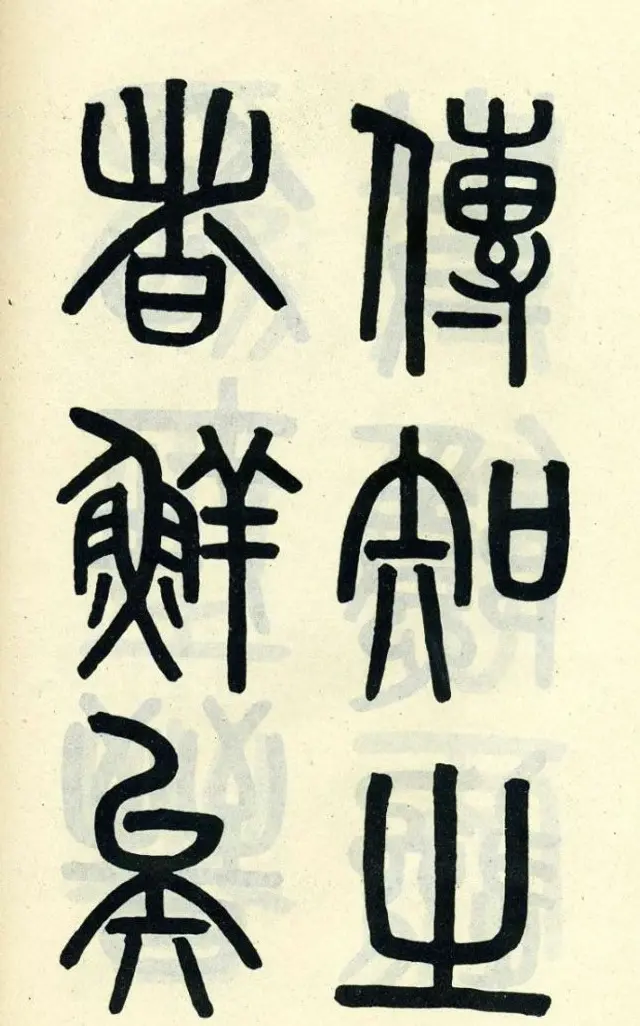 傳知之
者鮮矣